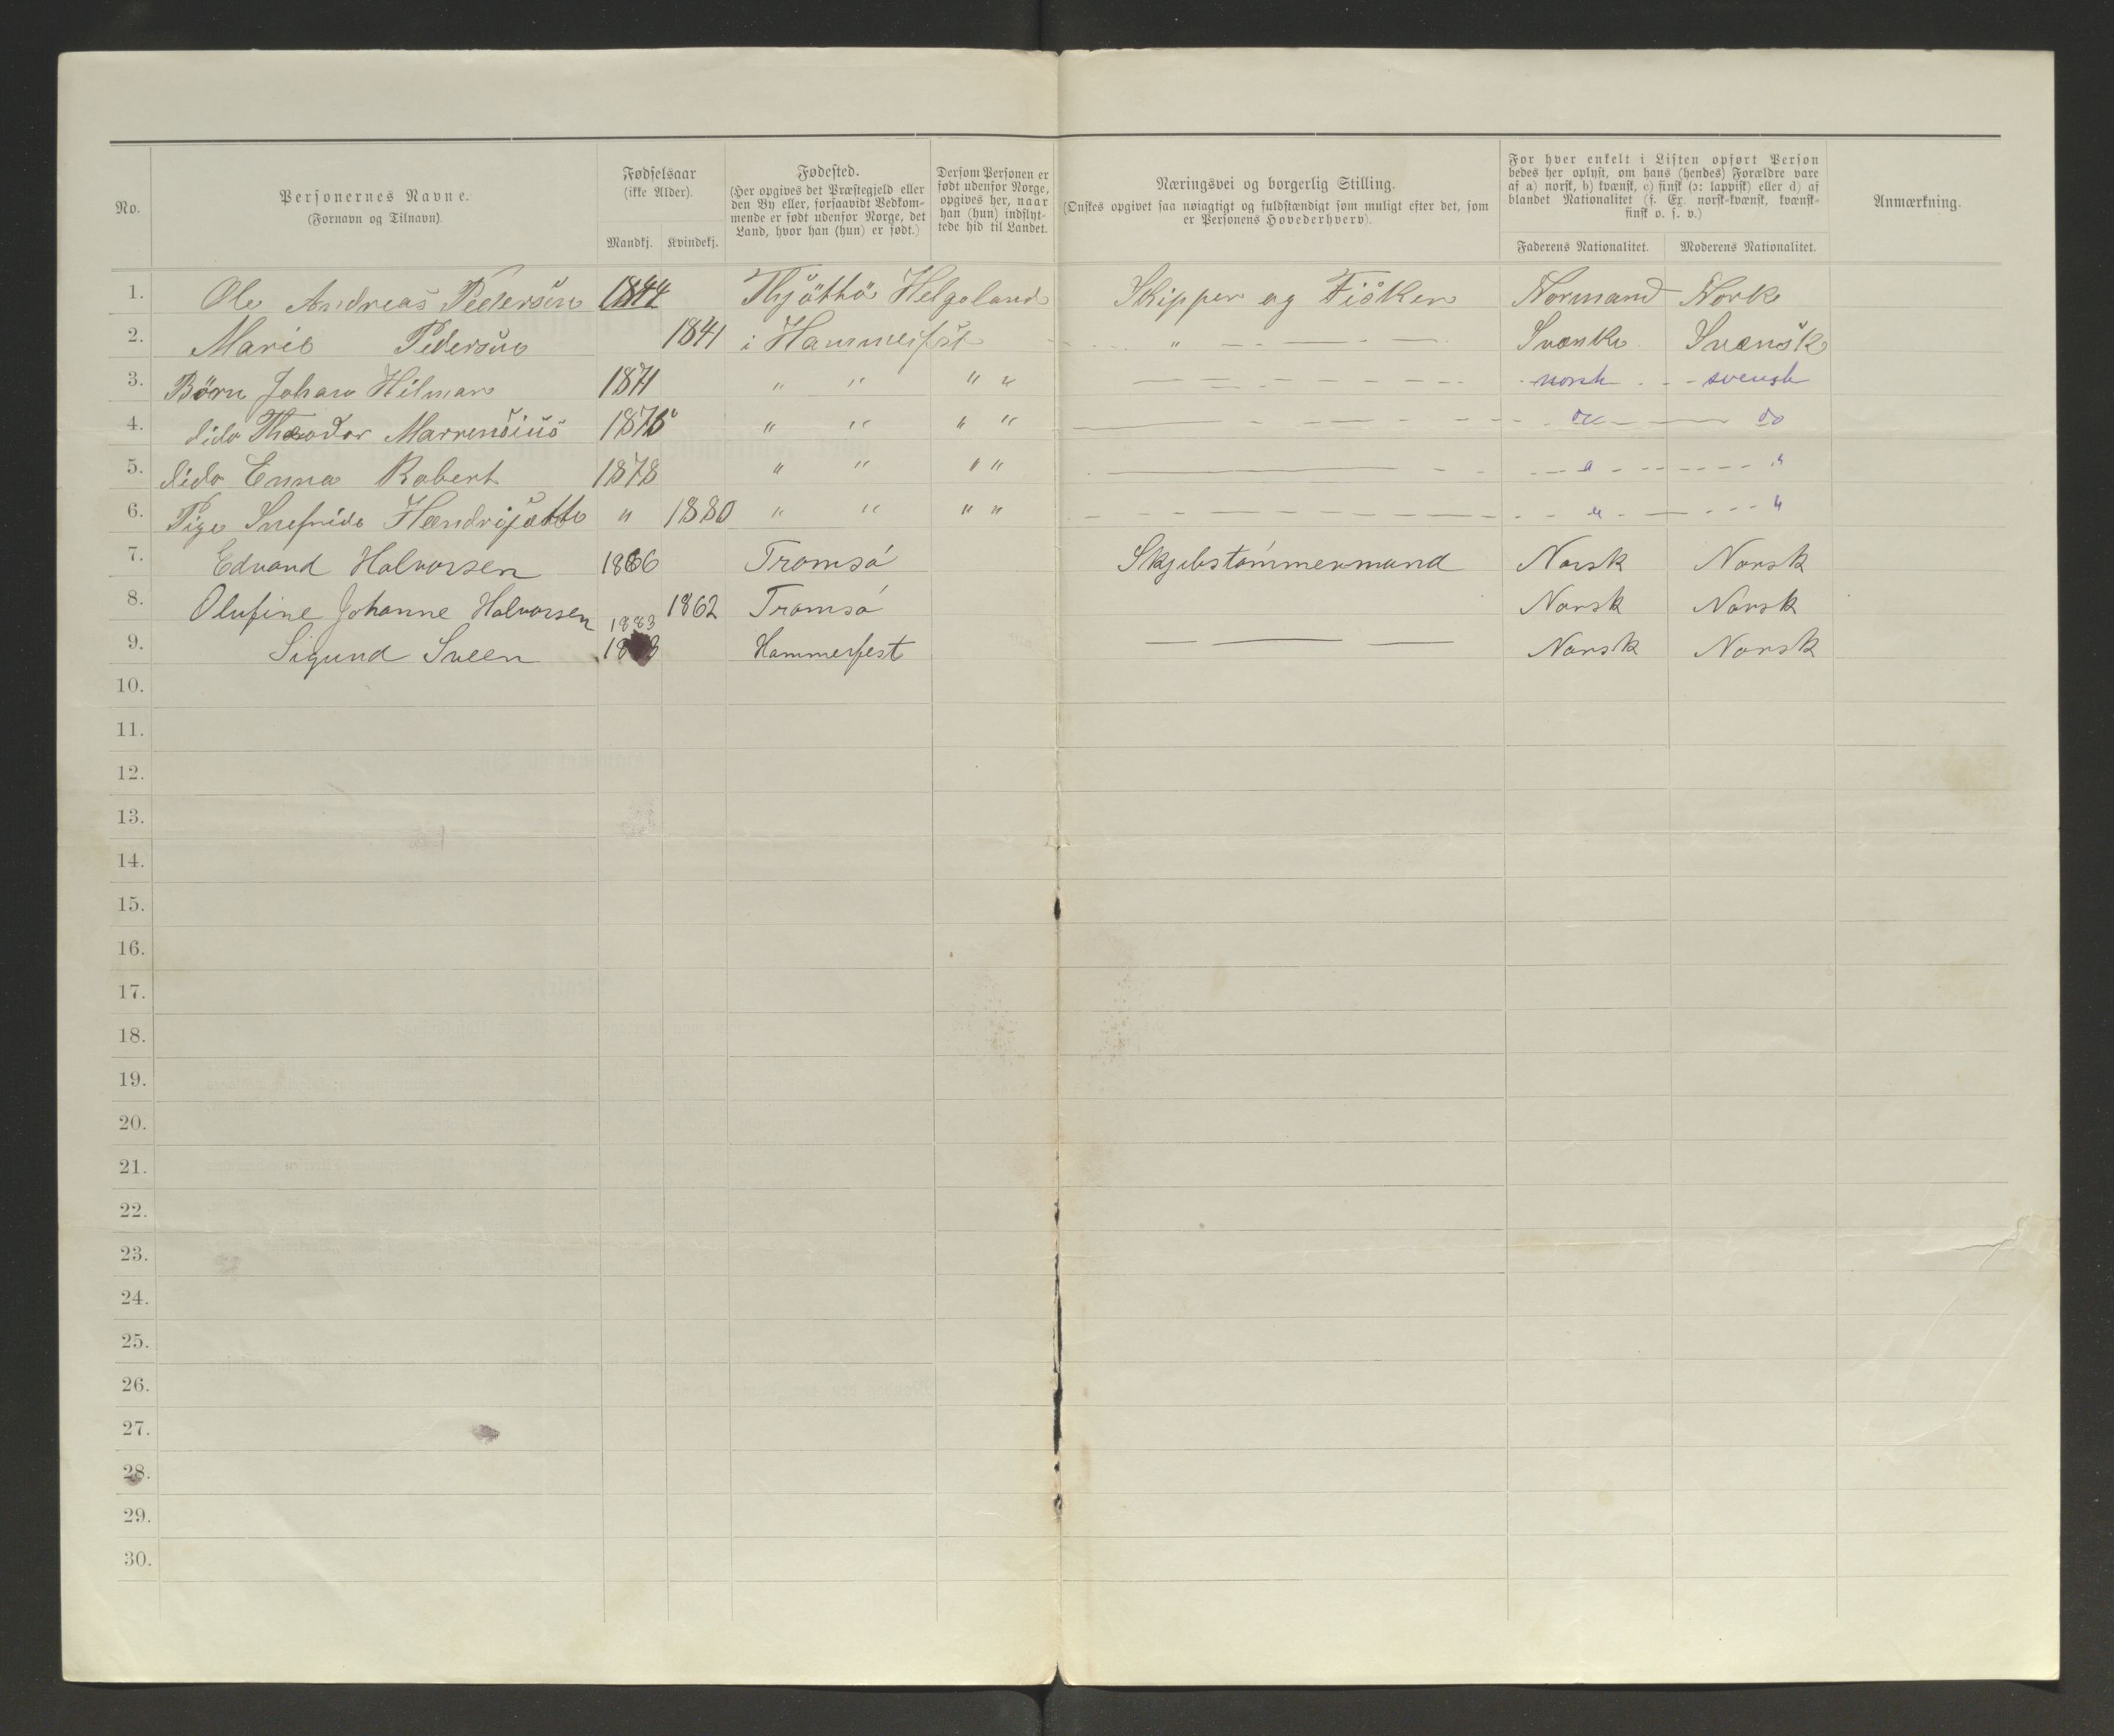 No.
Personernes Navne.
(Fornavn og Tilnavn).
Fødselsaar
(ikke Alder).
Mandkj. Kvindekj.
Fødested.
(Her opgives det Præstegjeld eller
den By eller, forsaavidt Vedkom-
mende er født udenfor Norge, det
Land, hvor han (hun) er født.)
Dersom Personen er
født udenfor Norge,
opgives her, naar
han (hun) indflyt-
tede hid til Landet.
Næringsvei og borgerlig Stilling.
(Ønskes opgivet saa nøiagtigt og fuldstændigt som muligt efter det, som
er Personens Hovederhverv).
For hver enkelt i Listen opført Person
bedes her oplyst, om hans (hendes) Forældre vare
af a) norsk, b) kvænsk, c) finsk (ɔ: lappisk) eller d) af
blandet Nationalitet (f. Ex. norsk-kvænsk, kvænsk-
finsk o. s. v.)
Faderens Nationalitet. Moderens Nationalitet.
Anmærkning.
1. Ole Andreas Pedersen 1844 Thjøttø Helgeland Skipper og Fisker Normand Nork
2. Marie Pedersen 1841 i Hammerfst " Svenke Svensk
3. Børn Johan Hilmar 1871 " " " " norsk svensk
4. dido Theodor Marrensius 1875 " " " " do do
5. dido Enna Robert 1878 " " " " " "
6. Pige Snefride " 1880 " " " " " "
7. Edvard Halvorsen 1866 Tromsø Skjibstømmermand Norsk Norsk
8. Olufine Johanne Halvorsen 1862 Tromsø Norsk Norsk
1883
9. Sigurd Sveen Hammerfest Norsk Norsk
10.
11.
12.
13.
14.
15.
16.
17.
18.
19.
20.
21.
22.
23.
24.
25.
26.
27.
28.
29.
30.